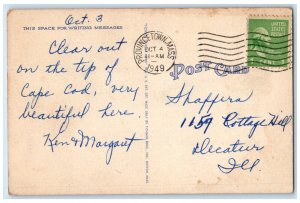 Oct. 3
THIS SPACE FOR WRITING MESSAGES
Clear out
on the tip of
Cape Cod, very
beautiful here.
Ken & Margaret
PROVINCETOWN, MASS.
OCT 4
11-AM
1949
POST CARD
Shaffers
1159 Cottage Hill
Decatur
Ill.